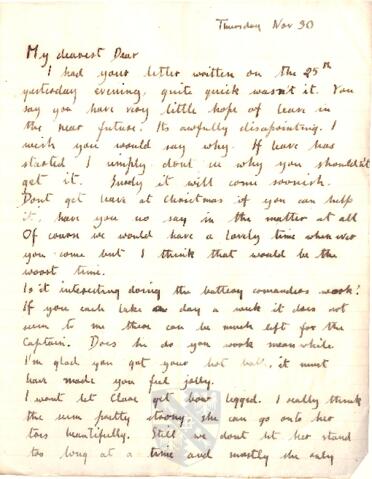 Thursday Nov 30
My dearest Dear
I had your letter written on the 25th
yesterday evening, quite quick wasn't it. You
say you have very little hope of leave in
the near future. Its awfully disapointing. I
wish you would say why. If leave has
started I simply dont see why you shouldn't
get it. Surely it will come soonish.
Dont get leave at Christmas if you can help
it, have you no say in the matter at all
Of course we would have a lovely time when ever
you come but I think that would be the
worst time.
Is it interesting doing the battery comanders work?
If you each take a day a week it does not
seem to me there can be much left for the
Captain. Does he do you work meanwhile.
I'm glad you got your hot bath, it must
have made you feel jolly.
I wont let Clare get bow legged. I really think
the seem pretty strong, she can go onto her
toes beautifully. Still we dont let her stand
too long at a time and mostly she only